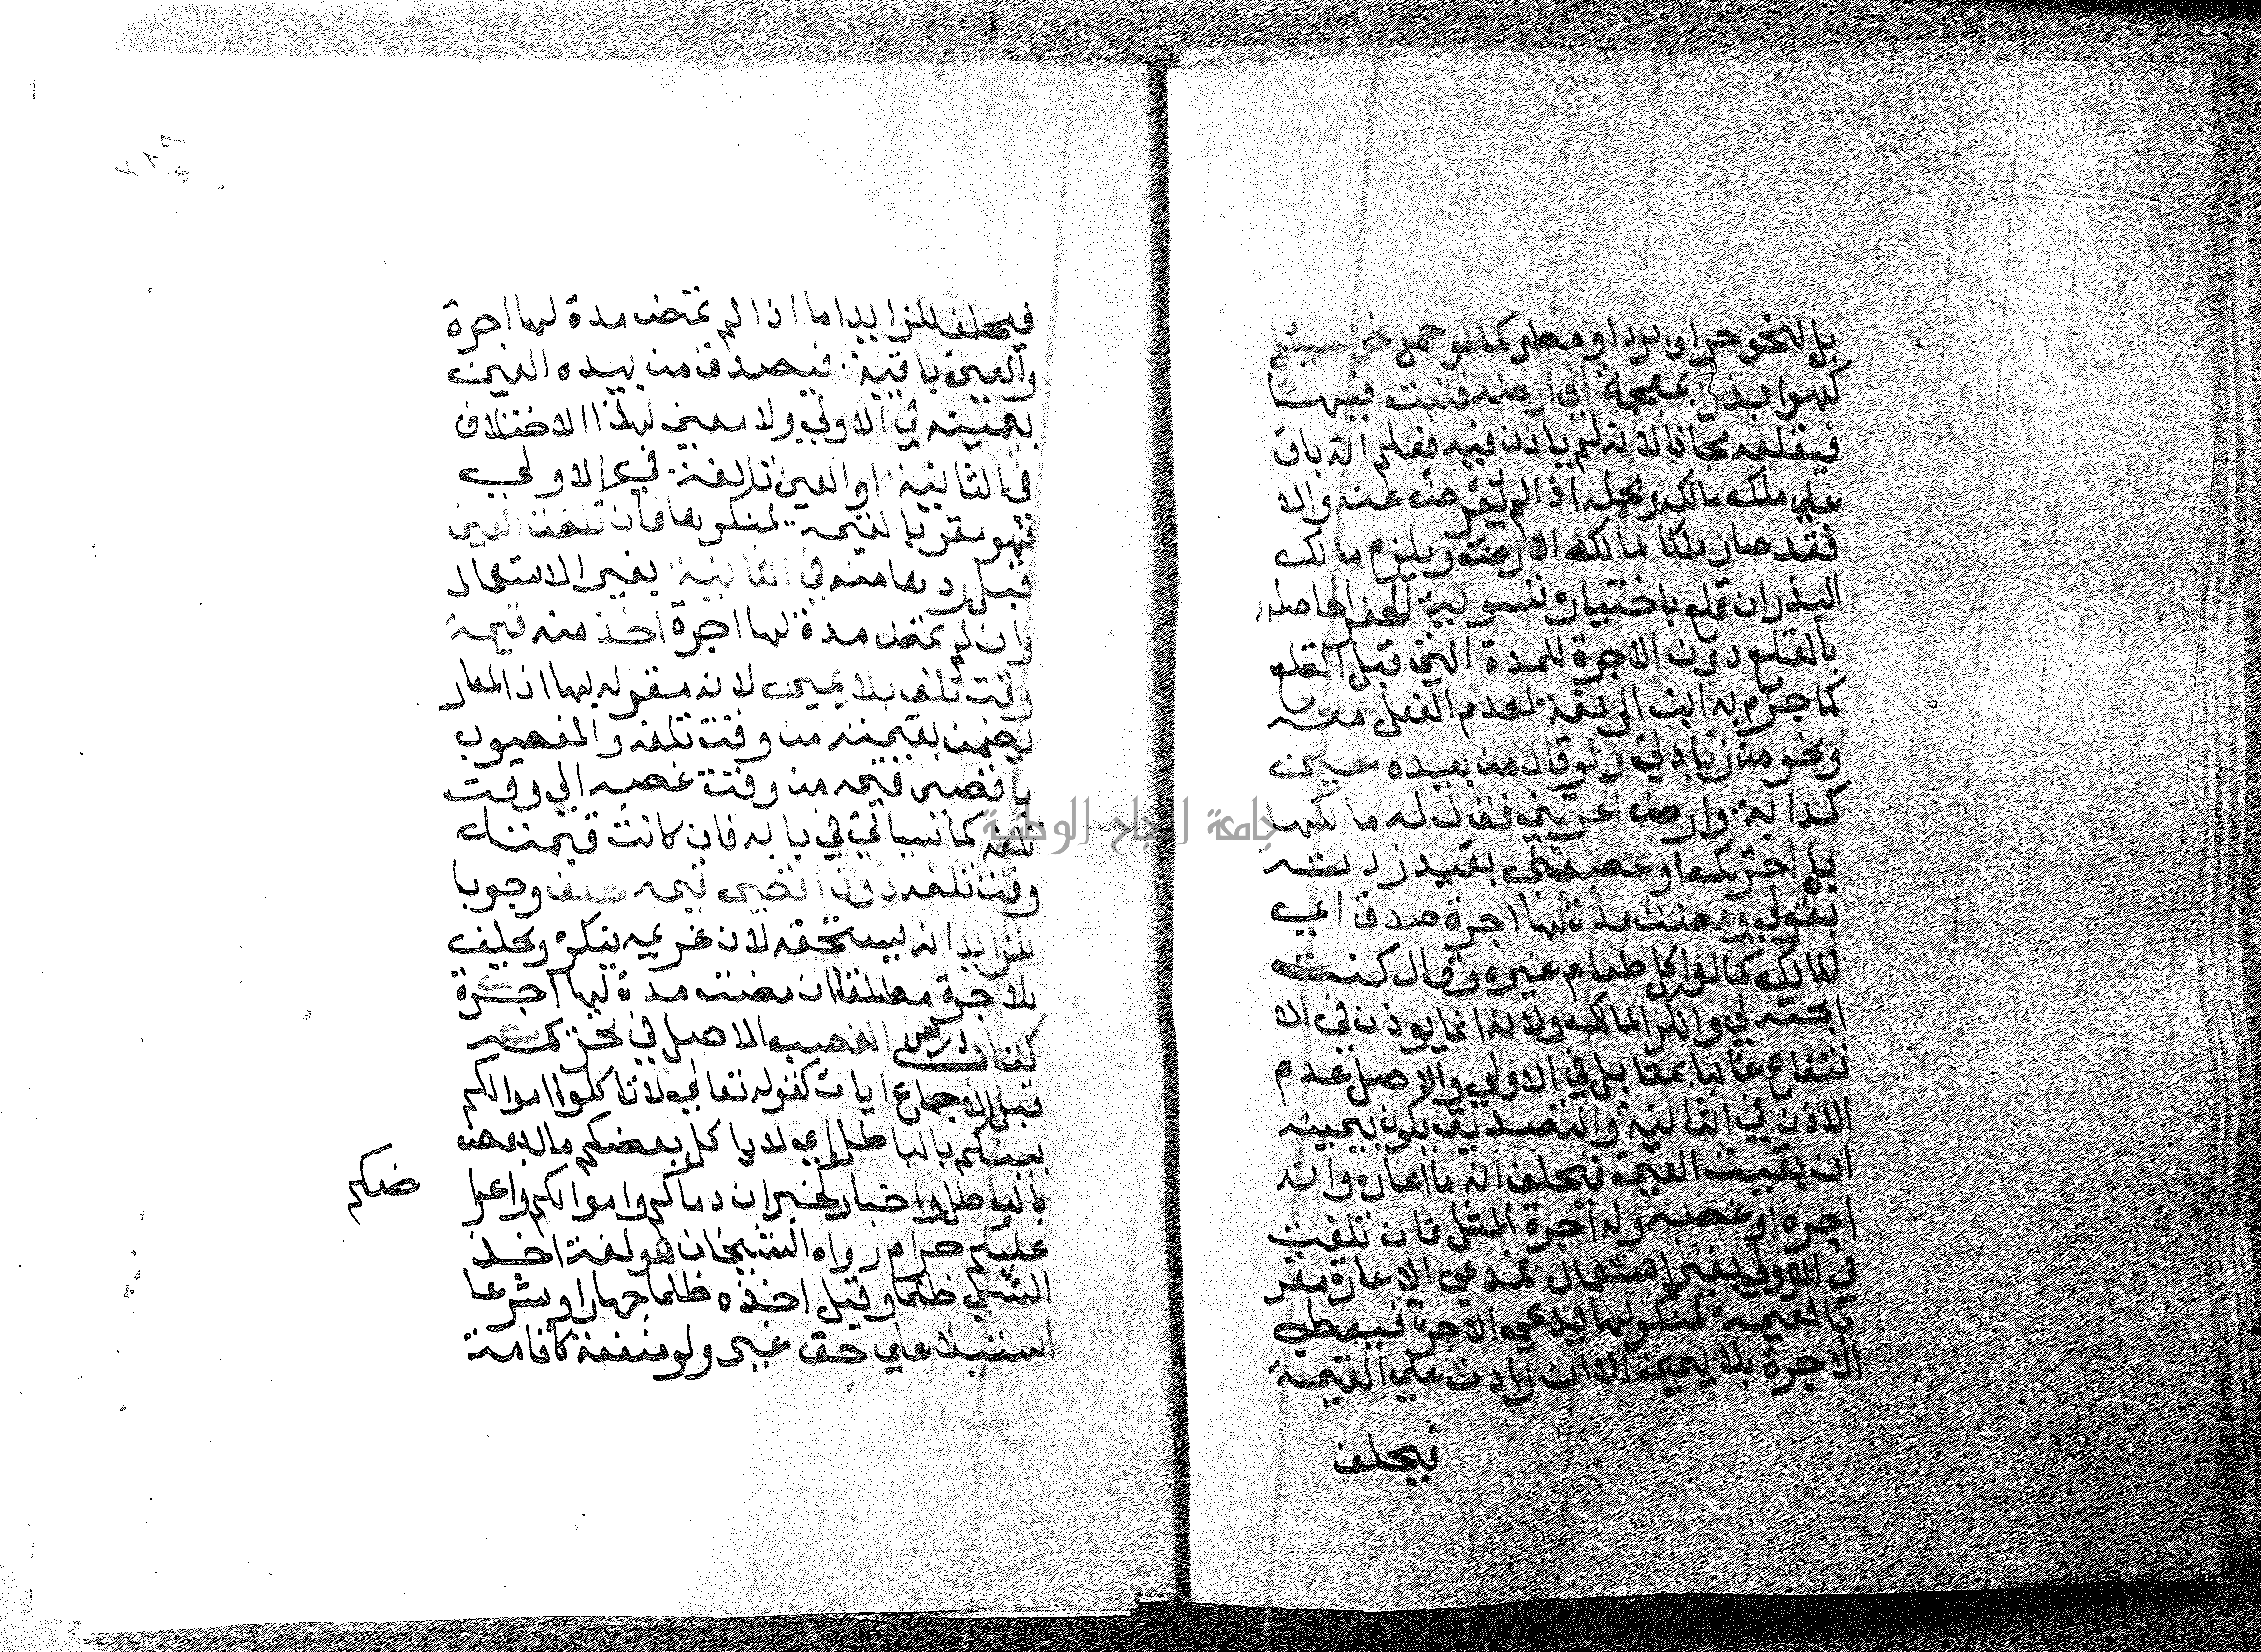 بل لنحو حر او برد او مطر كما لو حمل نحو سيل
كهوا بذرا بمعجمة الي ارضه فنبت فيها
فيقلعه مجانا لانه لم ياذن فيه فعلم انه باق
علي ملك مالكه ومحله اذا لم يعرض عنه والا
فقد صار ملكا لمالك الارض ويلزم مالك
البذر ان قلع باختياره تسوية الحفر الحاصلة
بالقلع دون الاجرة للمدة التي قبل القلع
كما جزم به ابن الرفعة لعدم الفعل منه
ونحو من زيادتي ولو قال من بيده عين
كدابة وارض اعرتني فقال له مالكها
بل اجرتكها او غصبتني بقيد زدته
بقولي ومضت مدة لها اجرة صدق اي
المالك كما لو اكل طعام غيره وقال كنت
ابحته لي وانكر المالك ولانه انما يوذن في الا
نتفاع غالبا بمقابل في الاولي والاصل عدم
الاذن في الثانية والتصديق يكون بيمينه
ان بقيت العين فيحلف انه ما اعاره وانه
اجره او غصبه وله اجرة المثل فان تلفت
في الاولي بغير استعمال فمدعي الاعارة مقر
بالقيمة لمنكر لها يدعي الاجرة فيعطي
الاجرة بلا يمين الا ان زادت علي القيمة
فيحلف
٢٨٩
فيحلف للزايد اما اذا لم تمض مدة لها اجرة
والعين باقية فيصدق من بيده العين
بيمينه في الاولي ولا معني لهذا الاختلاف
في الثانية او العين تالفة في الاولي
فهو مقر بالقيمة لمنكرها فان تلفت العين
قبل ردها منه في الثانية بغير الاستعمال
وان لم تمض مدة لها اجرة اخذ منه قيمة
وقت تلف بلا يمين لانه مقر له بها اذ المعار
يضمن بقيمته من وقت تلفه والمغصوب
باقصي قيمه من وقت غصبه الي وقت
تلفه كما سياتي في بابه فان كانت قيمته
وقت تلفه دون اقصي قيمه حلف وجوبا
للزايد انه يستحقه لان غريمه ينكره ويحلف
للاجرة مطلقا ان مضت مدة لها اجرة
كتاب الغصب الاصل في تحريمه
قبل الاجماع ايات كقوله تعالي لا تاكلوا اموالكم
بينكم بالباطل اي لا ياكل بعضكم مال بعض
بالباطل واخبار كخبر ان دماكم واموالكم واعرا
ضكم
عليكم حرام رواه الشيخان هو لغة اخذ
الشي ظلما وقيل اخذه ظلما جهارا وشرعا
استيلا علي حق غير ولو منفعة كاقامة
جامعة النجاح الوطنية